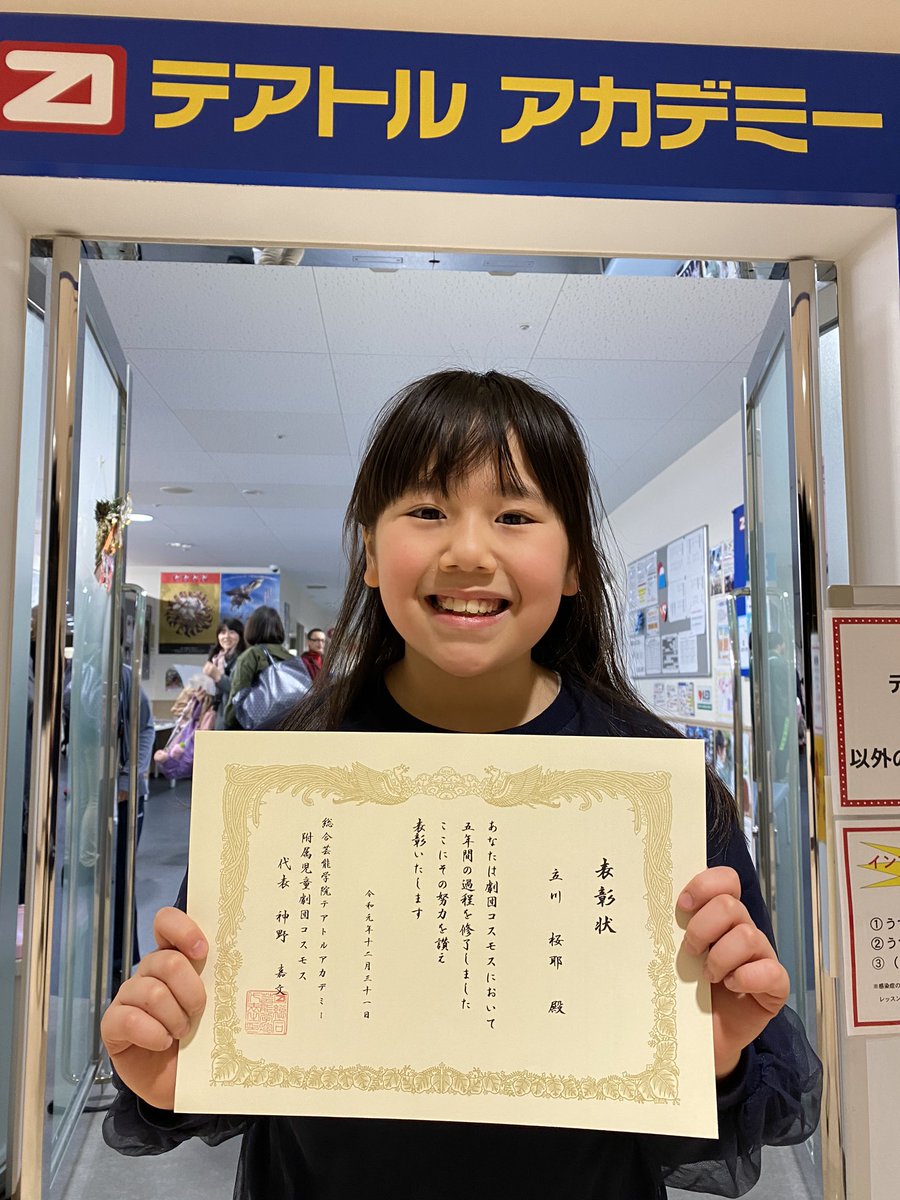 テアトル アカデミー
表彰状
立川 桜耶 殿
あなたは劇団コスモスにおいて
五年間の過程を修了しました
ここにその努力を讃え
表彰いたします
令和元年十二月三十一日
総合芸能学院テアトルアカデミー
附属児童劇団コスモス
代表 神野 嘉文
テ
以外の
イン
①うつ
②うつ
③（
※感染症の
レッスン